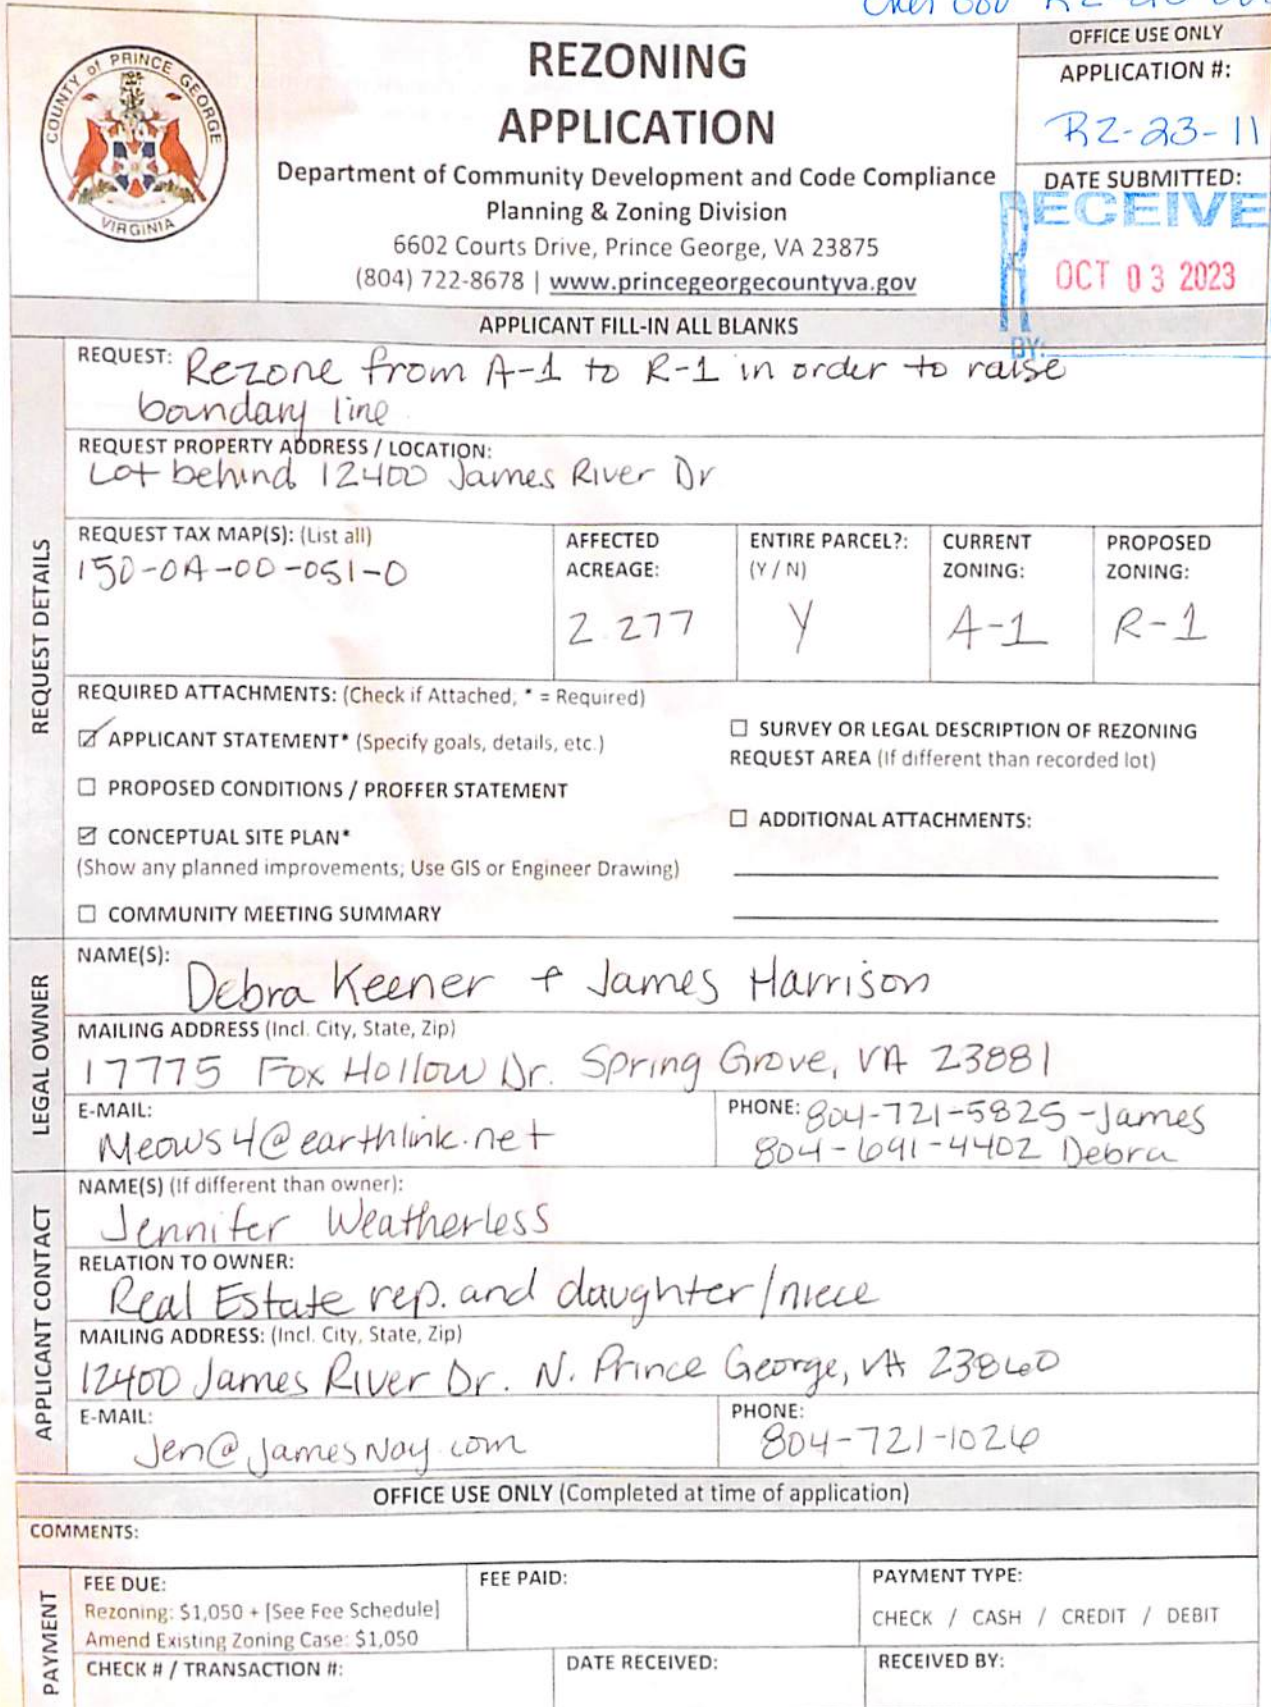 OFFICE USE ONLY
COUNTY of PRINCE GEORGE
VIRGINIA
REZONING
APPLICATION
Department of Community Development and Code Compliance
Planning & Zoning Division
6602 Courts Drive, Prince George, VA 23875
(804) 722-8678 | www.princegeorgecountyva.gov
APPLICATION #:
RZ-23-11
DATE SUBMITTED:
RECEIVE
OCT 03 2023
BY:
APPLICANT FILL-IN ALL BLANKS
REQUEST DETAILS
REQUEST: Rezone from A-1 to R-1 in order to raise
boundary line
REQUEST PROPERTY ADDRESS / LOCATION:
Lot behind 12400 James River Dr
REQUEST TAX MAP(S): (List all)
150-0A-00-051-0
AFFECTED
ACREAGE:
2.277
ENTIRE PARCEL?:
(Y / N)
Y
CURRENT
ZONING:
A-1
PROPOSED
ZONING:
R-1
REQUIRED ATTACHMENTS: (Check if Attached, * = Required)
☑ APPLICANT STATEMENT* (Specify goals, details, etc.)
☐ PROPOSED CONDITIONS / PROFFER STATEMENT
☑ CONCEPTUAL SITE PLAN*
(Show any planned improvements; Use GIS or Engineer Drawing)
☐ COMMUNITY MEETING SUMMARY
☐ SURVEY OR LEGAL DESCRIPTION OF REZONING
REQUEST AREA (If different than recorded lot)
☐ ADDITIONAL ATTACHMENTS:
LEGAL OWNER
NAME(S):
Debra Keener + James Harrison
MAILING ADDRESS (Incl. City, State, Zip)
17775 Fox Hollow Dr. Spring Grove, VA 23881
E-MAIL:
Meows4@earthlink.net
PHONE: 804-721-5825 -James
804-691-4402 Debra
APPLICANT CONTACT
NAME(S) (If different than owner):
Jennifer Weatherless
RELATION TO OWNER:
Real Estate rep. and daughter/niece
MAILING ADDRESS: (Incl. City, State, Zip)
12400 James River Dr. N. Prince George, VA 23860
E-MAIL:
Jen@JamesNay.com
PHONE:
804-721-1026
OFFICE USE ONLY (Completed at time of application)
COMMENTS:
PAYMENT
FEE DUE:
Rezoning: $1,050 + [See Fee Schedule]
Amend Existing Zoning Case: $1,050
FEE PAID:
PAYMENT TYPE:
CHECK / CASH / CREDIT / DEBIT
CHECK # / TRANSACTION #:
DATE RECEIVED:
RECEIVED BY: